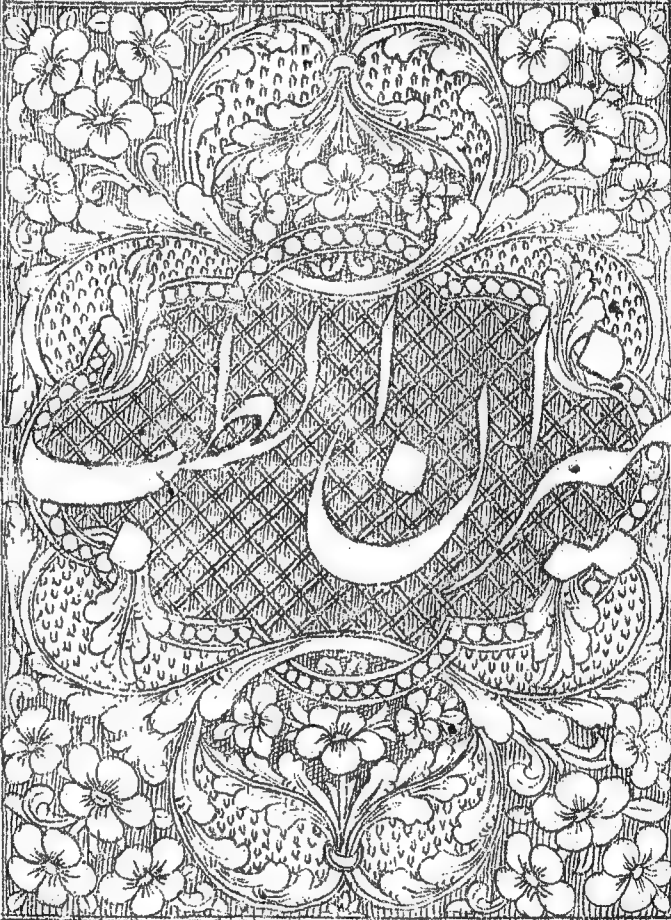 میزان الطب